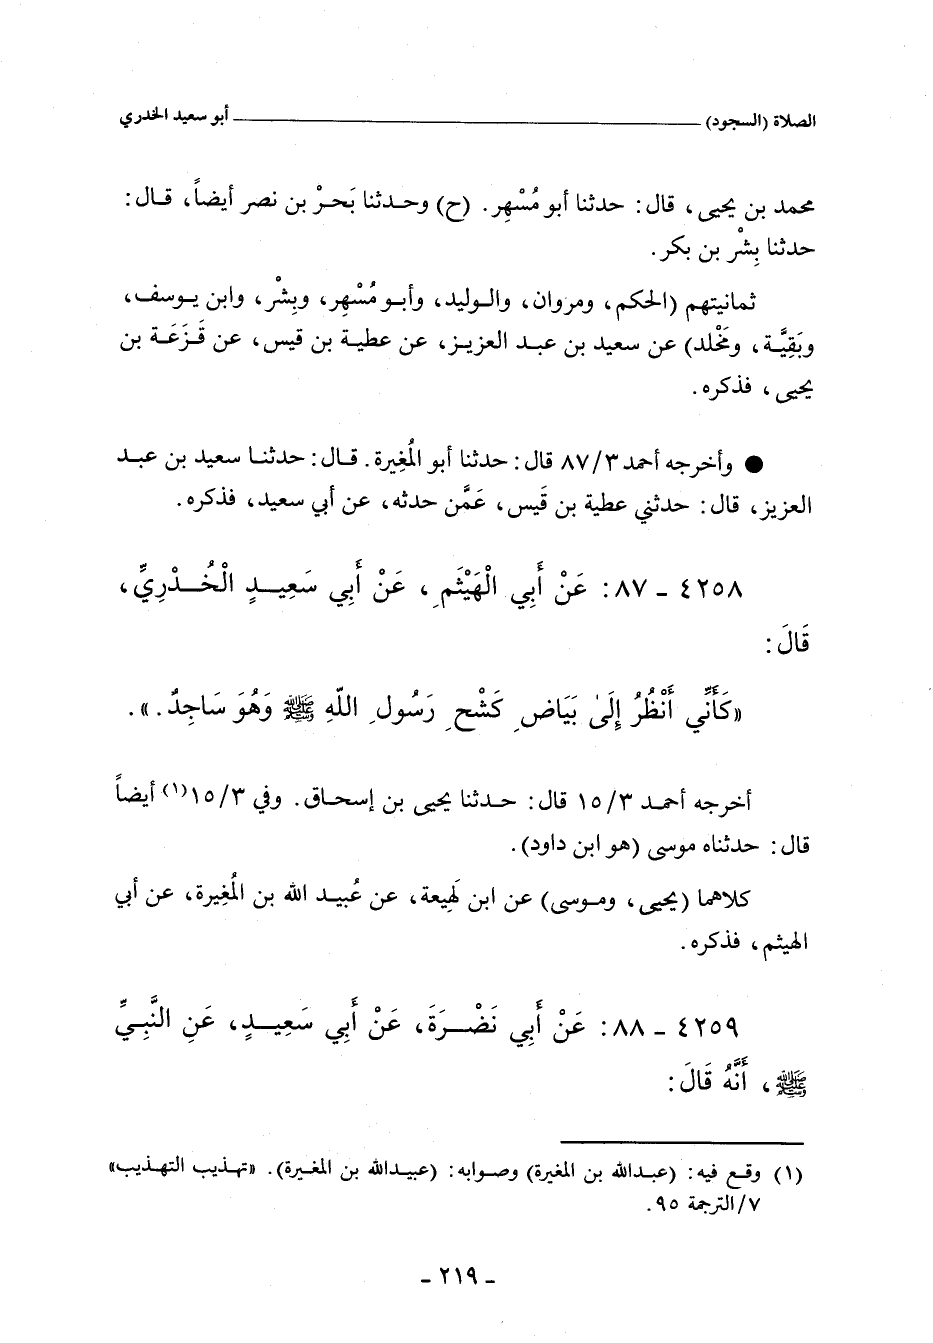 الصلاة (السجود) ــــــــــ أبو سعيد الخدري
محمد بن يحيى، قال: حدثنا أبو مُسْهِر. (ح) وحـدثنا بَحرْ بن نصر أيضاً، قـال:
حدثنا بِشْر بن بكر.
ثمانيتهم (الحكم، ومروان، والـوليد، وأبـو مُسْهِر، وبِشْر، وابن يـوسف،
وبَقِيَّـة، ومَخْلد) عن سعيد بن عبـد العزيـز، عن عطيـة بن قيس، عن قَـزَعَـة بن
يحيى، فذكره.
● وأخرجه أحمد ٨٧/٣ قال: حدثنا أبو المُغِيرة. قـال: حدثنـا سعيد بن عبـد
العزيز، قال: حدثني عطية بن قَيس، عَمَّن حدثه، عن أبي سعيد، فذكره.
٤٢٥٨ - ٨٧: عَنْ أَبِي الْهَيْثَمِ، عَنْ أَبِي سَعِيـدٍ الْخُـدْرِيِّ،
قَالَ:
«كَأَنِّي أَنْظُرُ إِلَىٰ بَيَاضِ كَشْحِ رَسُولِ اللّهِ ﷺ وَهُوَ سَاجِدٌ.».
أخرجه أحمـد ١٥/٣ قال: حـدثنا يحيى بن إسحـاق. وفي ١٥/٣(١) أيضاً
قال: حدثناه موسى (هو ابن داود).
كلاهما (يحيى، ومـوسى) عن ابن لَهِيعة، عن عُبيـد الله بن المُغِيرة، عن أبي
الهيثم، فذكره.
٤٢٥٩ - ٨٨: عَنْ أَبِي نَضْـرَةَ، عَنْ أَبِي سَعِيـدٍ، عَنِ النَّبِيِّ
ﷺ، أَنَّهُ قَالَ:
(١) وقـع فيه: (عبـدالله بن المغيرة) وصـوابه: (عبيـدالله بن المغيرة). «تهـذيب التهـذيب»
٧/الترجمة ٩٥.
- ٢١٩ -